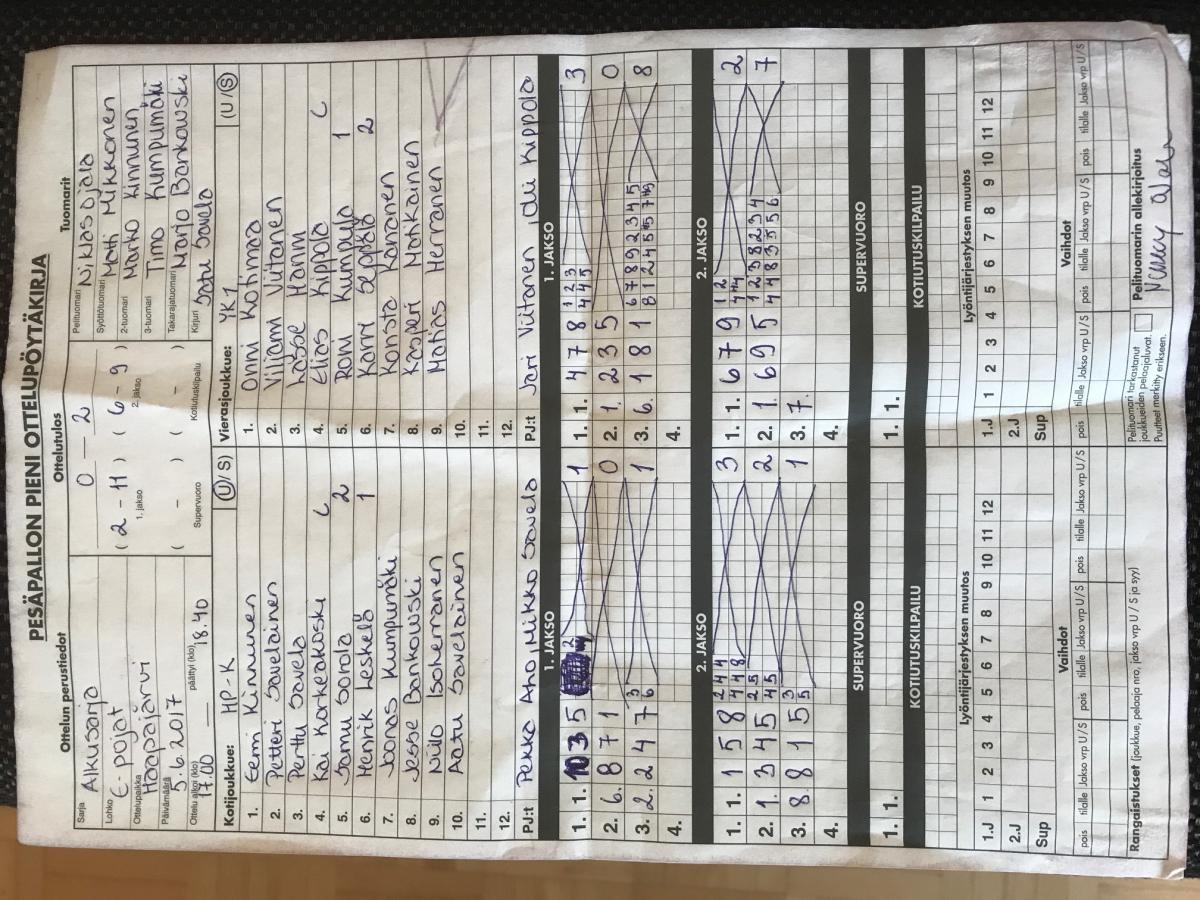 PESÄPALLON PIENI OTTELUPÖYTÄKIRJA
Ottelun perustiedot
Sarja Alkusarja
Lohko E-pojat
Ottelupaikka Haapajärvi
Päivämäärä 5.6.2017
Ottelu alkoi (klo) 17.00 päättyi (klo) 18.40
Ottelutulos
0 — 2
( 2 - 11 ) ( 6 - 9 )
1. jakso 2. jakso
( - ) ( - )
Supervuoro Kotiutuskilpailu
Tuomarit
Pelituomari Niklas Ojala
Syöttötuomari Matti Mikkonen
2-tuomari Marko Kinnunen
3-tuomari Timo Kumpumäki
Takarajatuomari Marjo Bankowski
Kirjuri Satu Savela
Kotijoukkue: HP-K (U/S)
1. Eemi Kinnunen
2. Petteri Savelainen
3. Perttu Savela
4. Kai Korkeakoski C
5. Samu Sorola 2
6. Henrik Leskelä 1
7. Joonas Kumpumäki
8. Jesse Bankowski
9. Niilo Isoherranen
10. Aatu Savelainen
11.
12.
PJ:t Pekka Aho, Mikko Savela
Vierasjoukkue: YK1 (U/S)
1. Onni Kotimaa
2. Viljami Viitanen
3. Lasse Hanni
4. Elias Kippola C
5. Roni Kumpula 1
6. Karri Seppälä 2
7. Konsta Kananen
8. Kasperi Matkainen
9. Matias Herranen
10.
11.
12.
PJ:t Jari Viitanen, Jali Kippola
1. JAKSO
1. 1. 10 3 5 1
2. 6. 8 7 1 0
3. 2. 2 4 7 3 6 1
4.
1. JAKSO
1. 1. 4 7 8 1 2 3 4 4 5 3
2. 1. 2 3 5 0
3. 6. 1 8 1 8
4.
2. JAKSO
1. 1. 1 5 8 3
2. 1. 3 4 5 2
3. 8. 8 1 5 3 5 1
4.
2. JAKSO
1. 1. 6 7 9 2
2. 1. 6 9 5 7
3. 7.
4.
SUPERVUORO
1. 1.
SUPERVUORO
1. 1.
KOTIUTUSKILPAILU
KOTIUTUSKILPAILU
Lyöntijärjestyksen muutos
1.J 1 2 3 4 5 6 7 8 9 10 11 12
2.J
Sup
Lyöntijärjestyksen muutos
1.J 1 2 3 4 5 6 7 8 9 10 11 12
2.J
Sup
Vaihdot
pois tilalle Jakso vrp U/S pois tilalle Jakso vrp U/S pois tilalle Jakso vrp U/S
Vaihdot
pois tilalle Jakso vrp U/S pois tilalle Jakso vrp U/S pois tilalle Jakso vrp U/S
Rangaistukset (joukkue, pelaaja nro, jakso vrp U / S ja syy)
Pelituomari tarkastanut
joukkueiden pelaajaluvat.
Puutteet merkitty erikseen.
Pelituomarin allekirjoitus